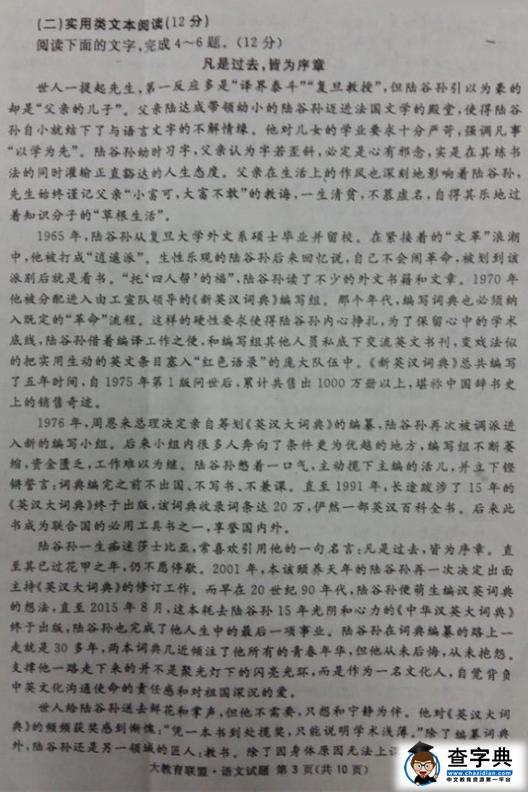 (二)实用类文本阅读(12分)
阅读下面的文字,完成4～6题。(12分)
凡是过去,皆为序章
世人一提起先生,第一反应多是“译界泰斗”“复旦教授”,但陆谷孙引以为豪的
却是“父亲的儿子”。父亲陆达成带领幼小的陆谷孙迈进法国文学的殿堂,使得陆谷
孙自小就结下了与语言文字的不解情缘。他对儿女的学业要求十分严苛,强调凡事
“以学为先”。陆谷孙幼时习字,父亲认为字若歪斜,必定是心有邪念,实是在其练书
法的同时灌输正直豁达的人生态度。父亲在生活上的作风也深刻地影响着陆谷孙,
先生始终谨记父亲“小富可,大富不敢”的教诲,一生清贫,不慕虚名,自得其乐地过
着知识分子的“草根生活”。
1965年,陆谷孙从复旦大学外文系硕士毕业并留校。在紧接着的“文革”浪潮
中,他被打成“逍遥派”。生性乐观的陆谷孙后来回忆说,自己不会闹革命,被划到该
派别后就是看书。“托‘四人帮’的福”,陆谷孙读了不少的外文书籍和文章。1970年
他被分配进入由工宣队领导的《新英汉词典》编写组。那个年代,编写词典也必须纳
入既定的“革命”流程。这样的硬性要求使得陆谷孙内心挣扎,为了保留心中的学术
底线,陆谷孙借着编译工作之便,和编写组其他人员私底下交流英文书刊,变戏法似
的把实用生动的英文条目塞入“红色语录”的庞大队伍中。《新英汉词典》总共编写
了五年时间,自1975年第1版问世后,累计共售出1000万册以上,堪称中国辞书史
上的销售奇迹。
1976年,周恩来总理决定亲自筹划《英汉大词典》的编纂,陆谷孙再次被调派进
入新的编写小组。后来小组内很多人奔向了条件更为优越的地方,编写组不断萎
缩,资金匮乏,工作难以为继。陆谷孙憋着一口气,主动揽下主编的活儿,并立下铿
锵誓言:词典编完之前不出国、不写书、不兼课。直至1991年,长途跋涉了15年的
《英汉大词典》终于出版,该词典收录词条达20万,俨然一部英汉百科全书。后来此
书成为联合国的必用工具书之一,享誉国内外。
陆谷孙一生痴迷莎士比亚,常喜欢引用他的一句名言:凡是过去,皆为序章。直
至其已过花甲之年,仍不愿停歇。2001年,本该颐养天年的陆谷孙再一次决定出面
主持《英汉大词典》的修订工作。而早在20世纪90年代,陆谷孙便萌生编汉英词典
的想法,直至2015年8月,这本耗去陆谷孙15年光阴和心力的《中华汉英大词典》
终于出版,陆谷孙也完成了他人生中的最后一项事业。陆谷孙在词典编纂的路上一
走就是30多年,两本词典几近倾注了他所有的青春年华,但他从未后悔,从未抱怨。
支撑他一路走下来的并不是聚光灯下的闪亮光环,而是作为一名文化人,自觉背负
中英文化沟通使命的责任感和对祖国深沉的爱。
世人给陆谷孙送去鲜花和掌声,但他不需要,只想和宁静为伴。他对《英汉大词
典》的频频获奖感到惭愧:“凭一本书到处揽奖,只能说明学术浅薄。”除了编纂词典
外,陆谷孙还是另一领域的匠人:教书。除了因身体原因无法上
大教育联盟·语文试题 第3页(共10页)
查字典